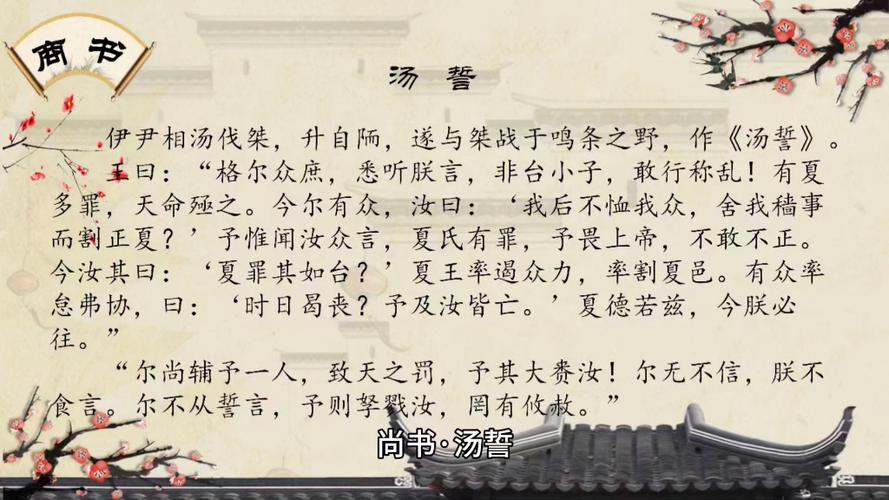 商书
汤 誓
伊尹相汤伐桀，升自陑，遂与桀战于鸣条之野，作《汤誓》。
王曰：“格尔众庶，悉听朕言，非台小子，敢行称乱！有夏
多罪，天命殛之。今尔有众，汝曰：‘我后不恤我众，舍我穑事
而割正夏？’予惟闻汝众言，夏氏有罪，予畏上帝，不敢不正。
今汝其曰：‘夏罪其如台？’夏王率遏众力，率割夏邑。有众率
怠弗协，曰：‘时日曷丧？予及汝皆亡。’夏德若兹，今朕必
往。”
“尔尚辅予一人，致天之罚，予其大赉汝！尔无不信，朕不
食言。尔不从誓言，予则孥戮汝，罔有攸赦。”
尚书·汤誓